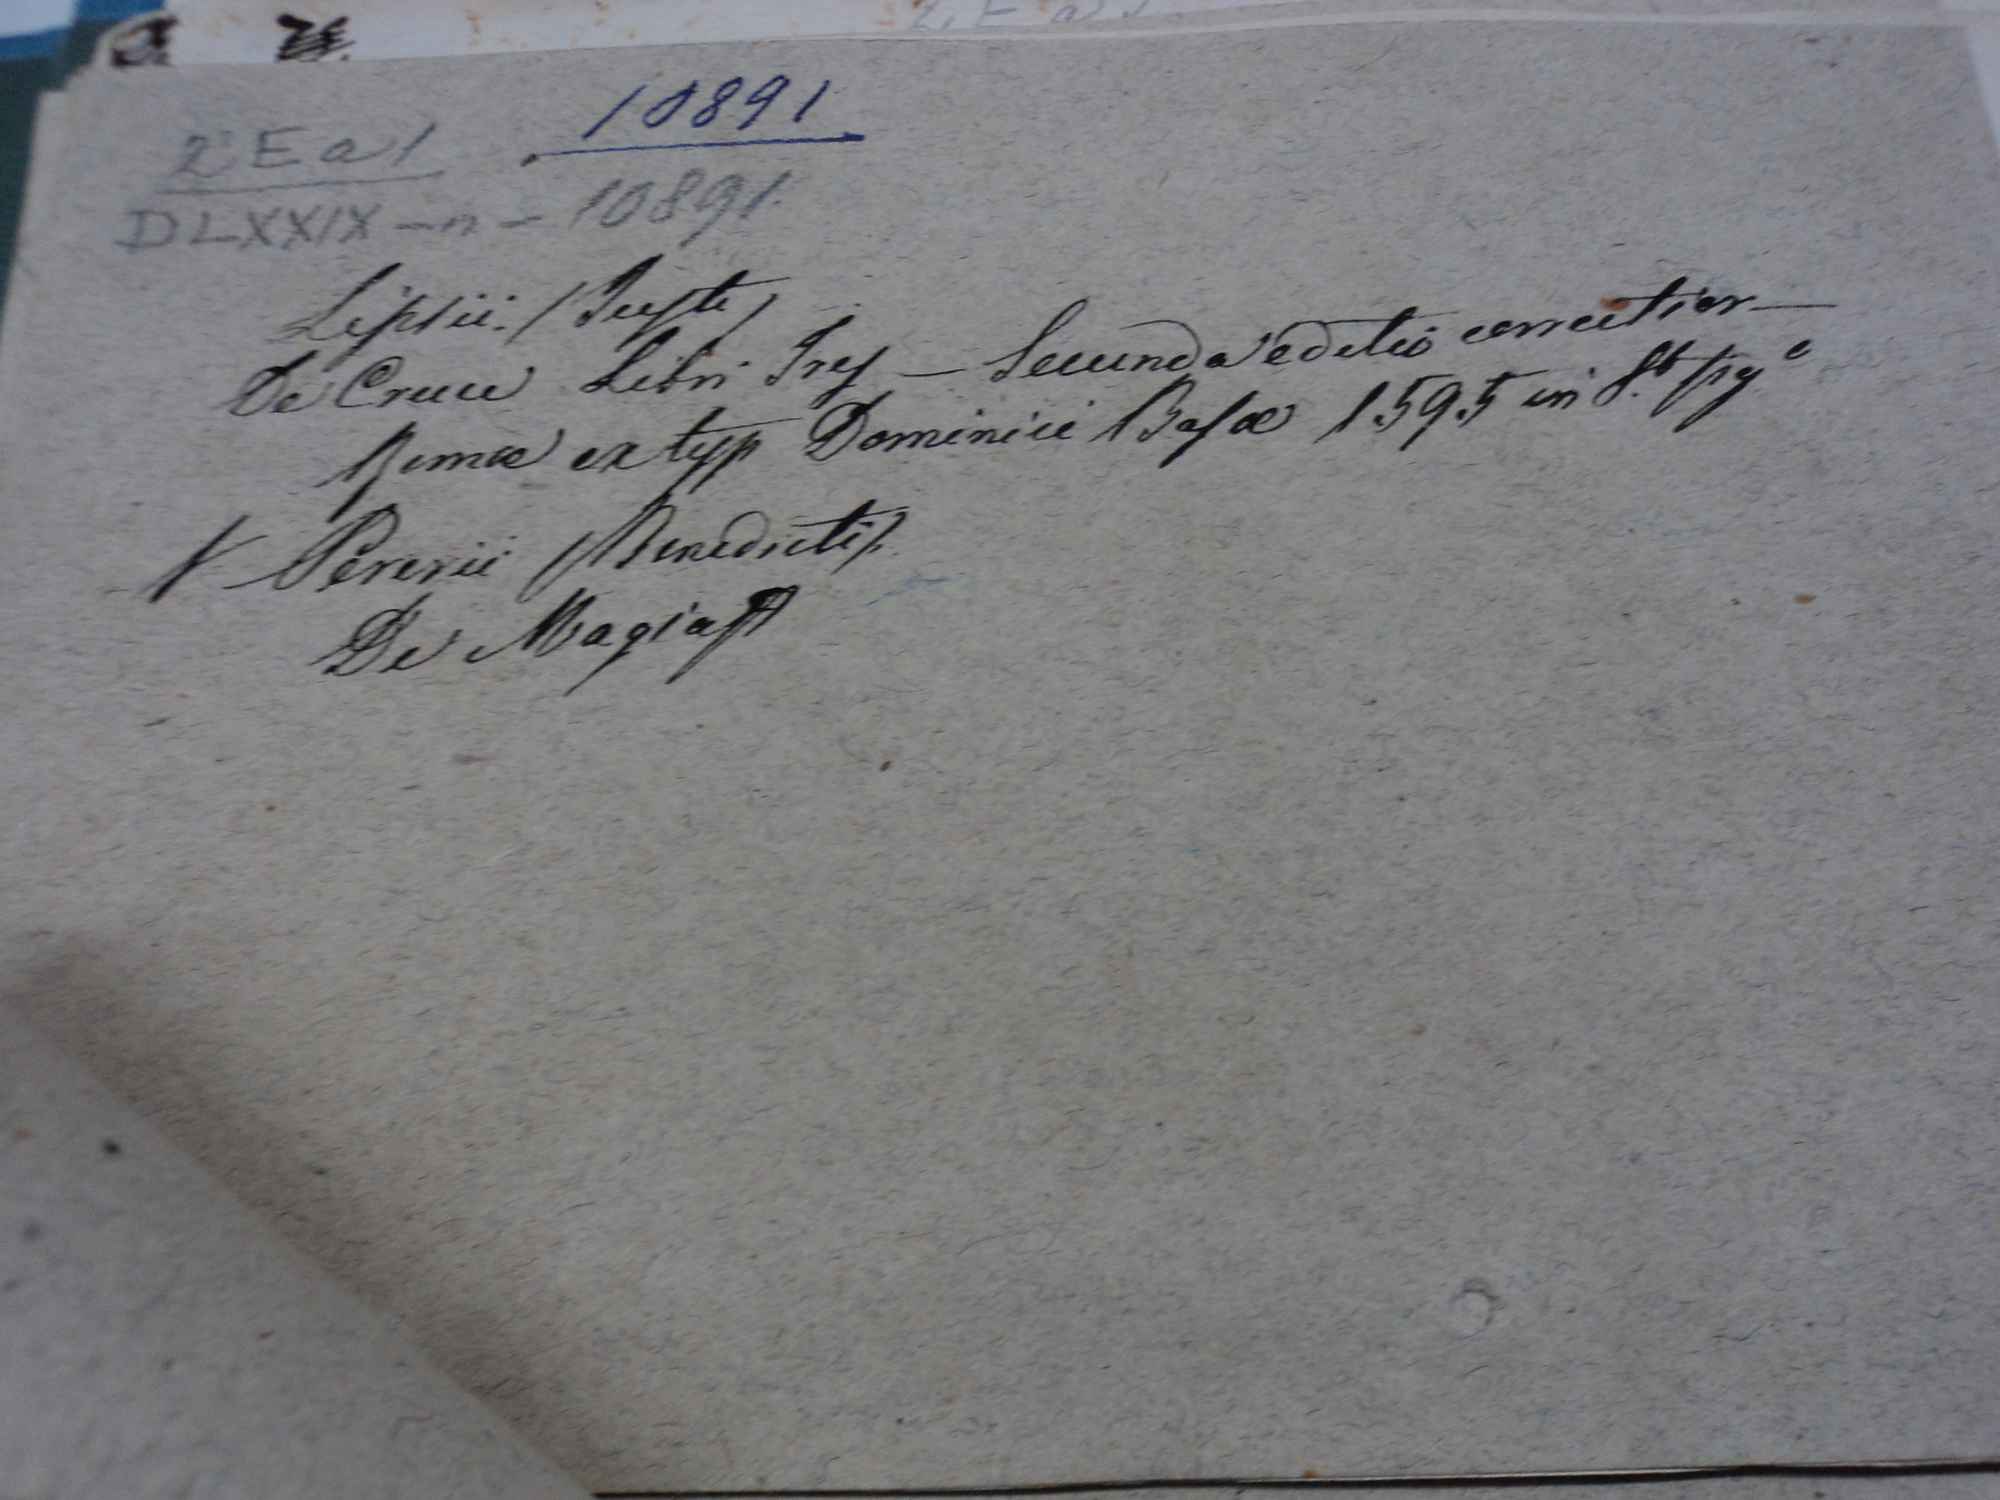 2 E a 1
10891
DLXXIX - n - 10891.
Lipsii. (Justi)
De Cruce Libri Tres — Secunda editio correctior —
Romæ ex typ Dominici Basæ 1595 in 8.º
Pererii (Benedicti).
De Magia